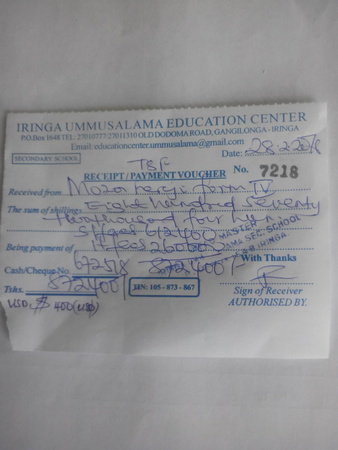 IRINGA UMMUSALAMA EDUCATION CENTER
P.O.Box 1648 TEL: 27010777-27011310 OLD DODOMA ROAD, GANGILONGA - IRINGA
Email:educationcenter.ummusalama@gmail.com
SECONDARY SCHOOL Date: 28-2-2018
T&F
RECEIPT/PAYMENT VOUCHER No. 7218
Received from Moza form IV
The sum of shillings Eight hundred seventy
two thousand four
S fees 612400
Being payment of H fees 260000
MASTER
SEC. SCHOOL
IRINGA
67258 872400/-
Cash/Cheque No. With Thanks
Tshs. 872400 TIN: 105 - 873 - 867 Sign of Receiver
AUTHORISED BY.
USD. $ 400 (USD)